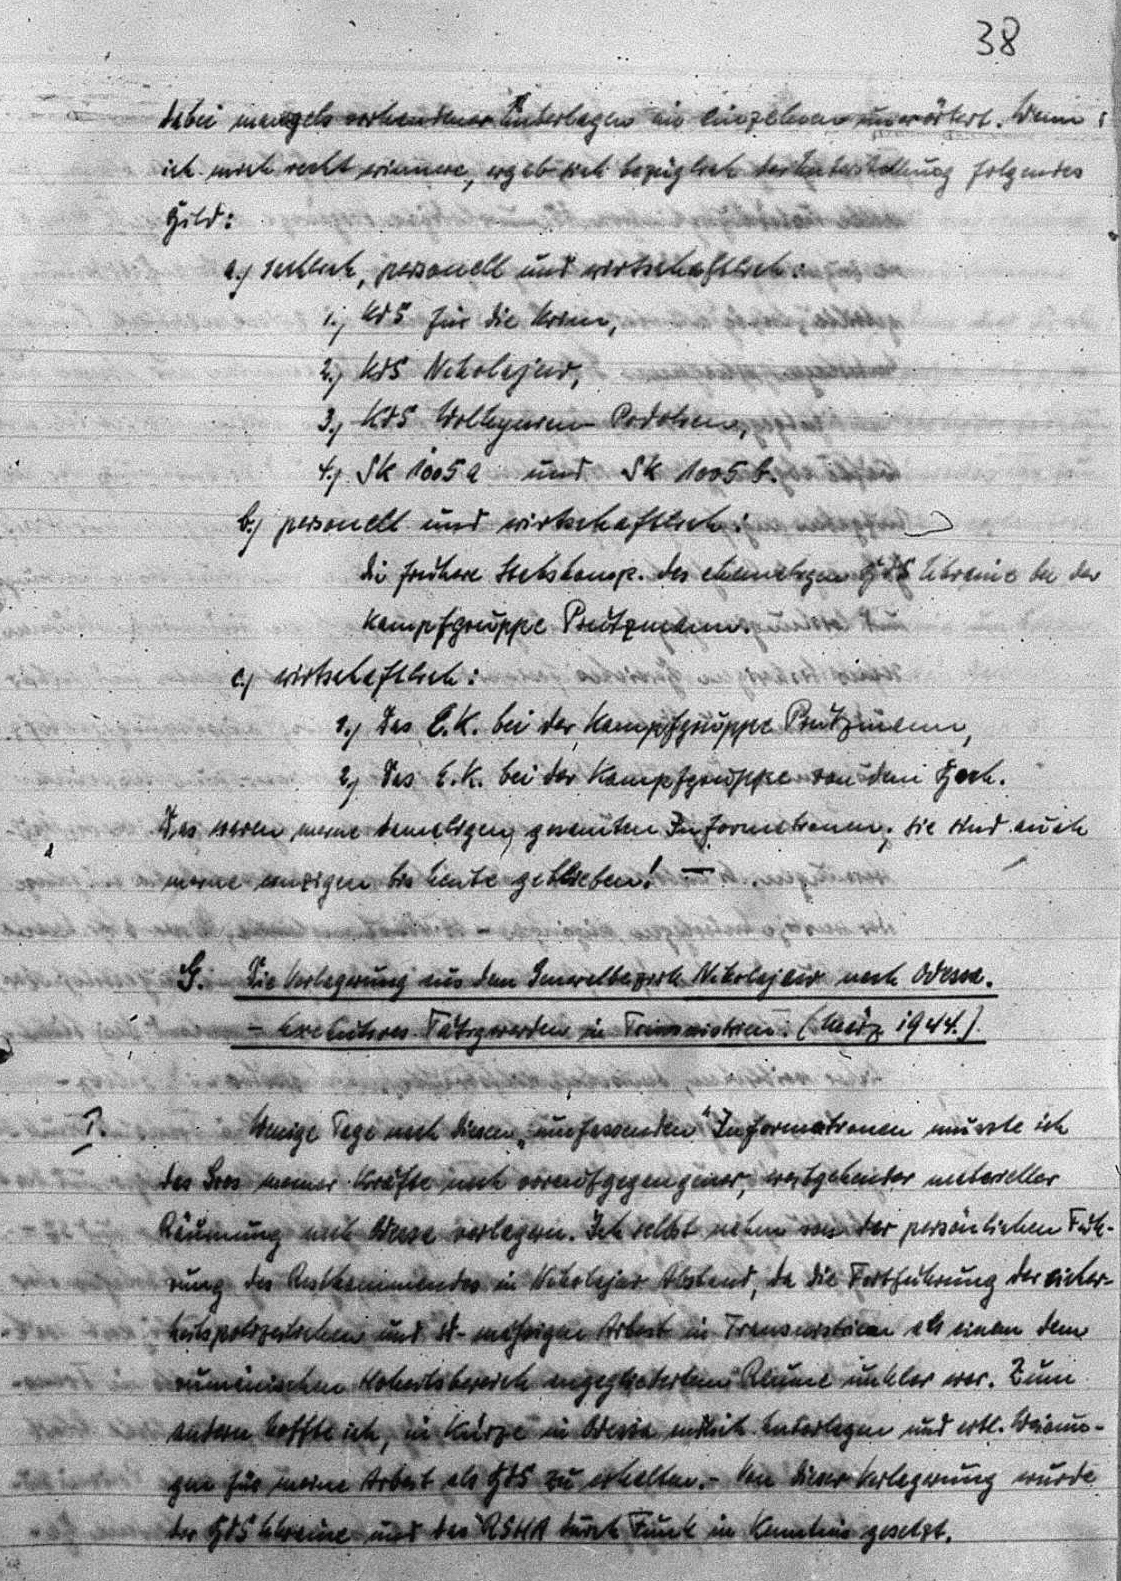 38
dabei mangels vorhandener Unterlagen im einzelnen unerörtert. Wenn
ich mich recht erinnere, ergab sich bezüglich der Unterstellung folgendes
Bild:
a.) sachlich, personell und wirtschaftlich:
1.) KdS für die Krim,
2.) KdS Nikolajew,
3.) KdS Wolhynien-Podolien,
4.) SK 1005a und SK 1005b.
b.) personell und wirtschaftlich:
die frühere Stabskomp. des ehemaligen BdS Ukraine bei der
Kampfgruppe Prützmann.
c.) wirtschaftlich:
1.) Das E.K. bei der Kampfgruppe Prützmann,
2.) Das E.K. bei der Kampfgruppe von dem Bach.
Das waren meine damaligen gesamten Informationen; sie sind auch
meine einzigen bis heute geblieben! —
G. Die Verlegerung aus dem Generalbezirk Nikolajew nach Odessa.
– Tätigwerden in Transnistrien. (März 1944.)
I. Wenige Tage nach diesen „umfassenden" Informationen musste ich
das Gros meiner Kräfte nach voraufgegangener, weitgehender materieller
Räumung nach Odessa verlegern. Ich selbst nahm von der persönlichen Füh-
rung des Restkommandos in Nikolajew Abstand, da die Fortführung der sicher-
heitspolizeilichen und sd-mässigen Arbeit in Transnistrien als einem dem
rumänischen Hoheitsbereich angegliederten Raume unklar war. Zum
andern hoffte ich, in Kürze in Odessa endlich Unterlagen und evtl. Weisun-
gen für meine Arbeit als BdS zu erhalten.- Von dieser Verlegerung wurde
der BdS Ukraine und das RSHA durch Funk in Kenntnis gesetzt.